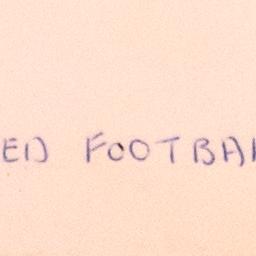 ED FOOTBA